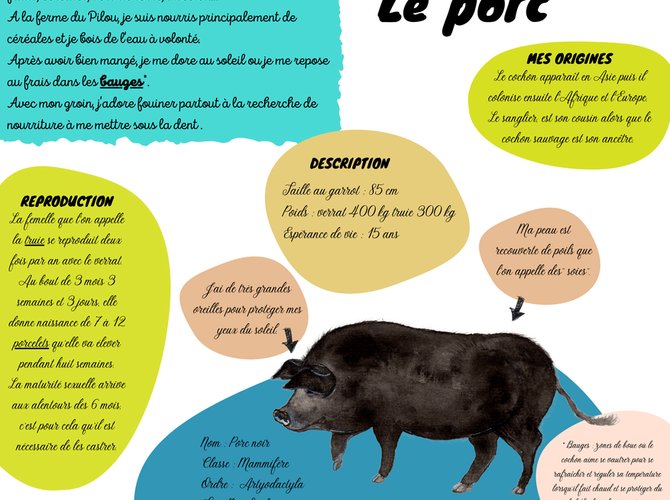 Le porc
A la ferme du Pilou, je suis nourris principalement de
céréales et je bois de l'eau à volonté.
Après avoir bien mangé, je me dore au soleil ou je me repose
au frais dans les bauges*.
Avec mon groin, j'adore fouiner partout à la recherche de
nourriture à me mettre sous la dent.
MES ORIGINES
Le cochon apparait en Asie puis il
colonise ensuite l'Afrique et l'Europe.
Le sanglier, est son cousin alors que le
cochon sauvage est son ancêtre.
DESCRIPTION
Taille au garrot : 85 cm
Poids : verrat 400 kg truie 300 kg
Esperance de vie : 15 ans
REPRODUCTION
La femelle que l'on appelle
la truie se reproduit deux
fois par an avec le verrat.
Au bout de 3 mois 3
semaines et 3 jours, elle
donne naissance de 7 à 12
porcelets qu'elle va elever
pendant huit semaines.
La maturité sexuelle arrive
aux alentours des 6 mois,
c'est pour cela qu'il est
nécessaire de les castrer.
J'ai de très grandes
oreilles pour protéger mes
yeux du soleil.
Ma peau est
recouverte de poils que
l'on appelle des "soies".
Nom : Porc noir
Classe : Mammifère
Ordre : Artyodactyla
* Bauges : zones de boue où le
cochon aime se vautrer pour se
rafraîchir et réguler sa température
lorsqu'il fait chaud et se protéger du